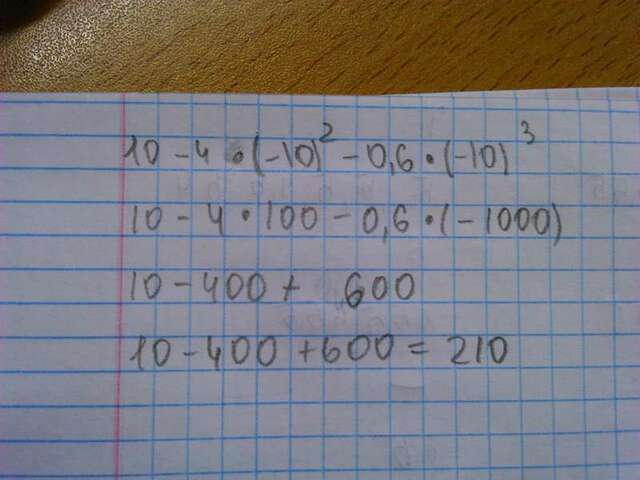 10 - 4 • (-10)² - 0,6 • (-10)³
10 - 4 • 100 - 0,6 • (- 1000)
10 - 400 + 600
10 - 400 + 600 = 210